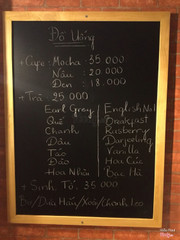 Đồ Uống
+ Cafe: Mocha 35 000
Nâu : 20.000
Đen : 18.000
+ Trà 25.000
Earl Grey | English No1
Quế | Breakfast
Chanh | Rasberry
Dâu | Darjerling
Táo | Vanilla
Đào | Hoa Cúc
Hoa Nhài | Bạc Hà
+ Sinh Tố: 35.000
Bơ/Dưa Hấu/Xoài/chanh leo